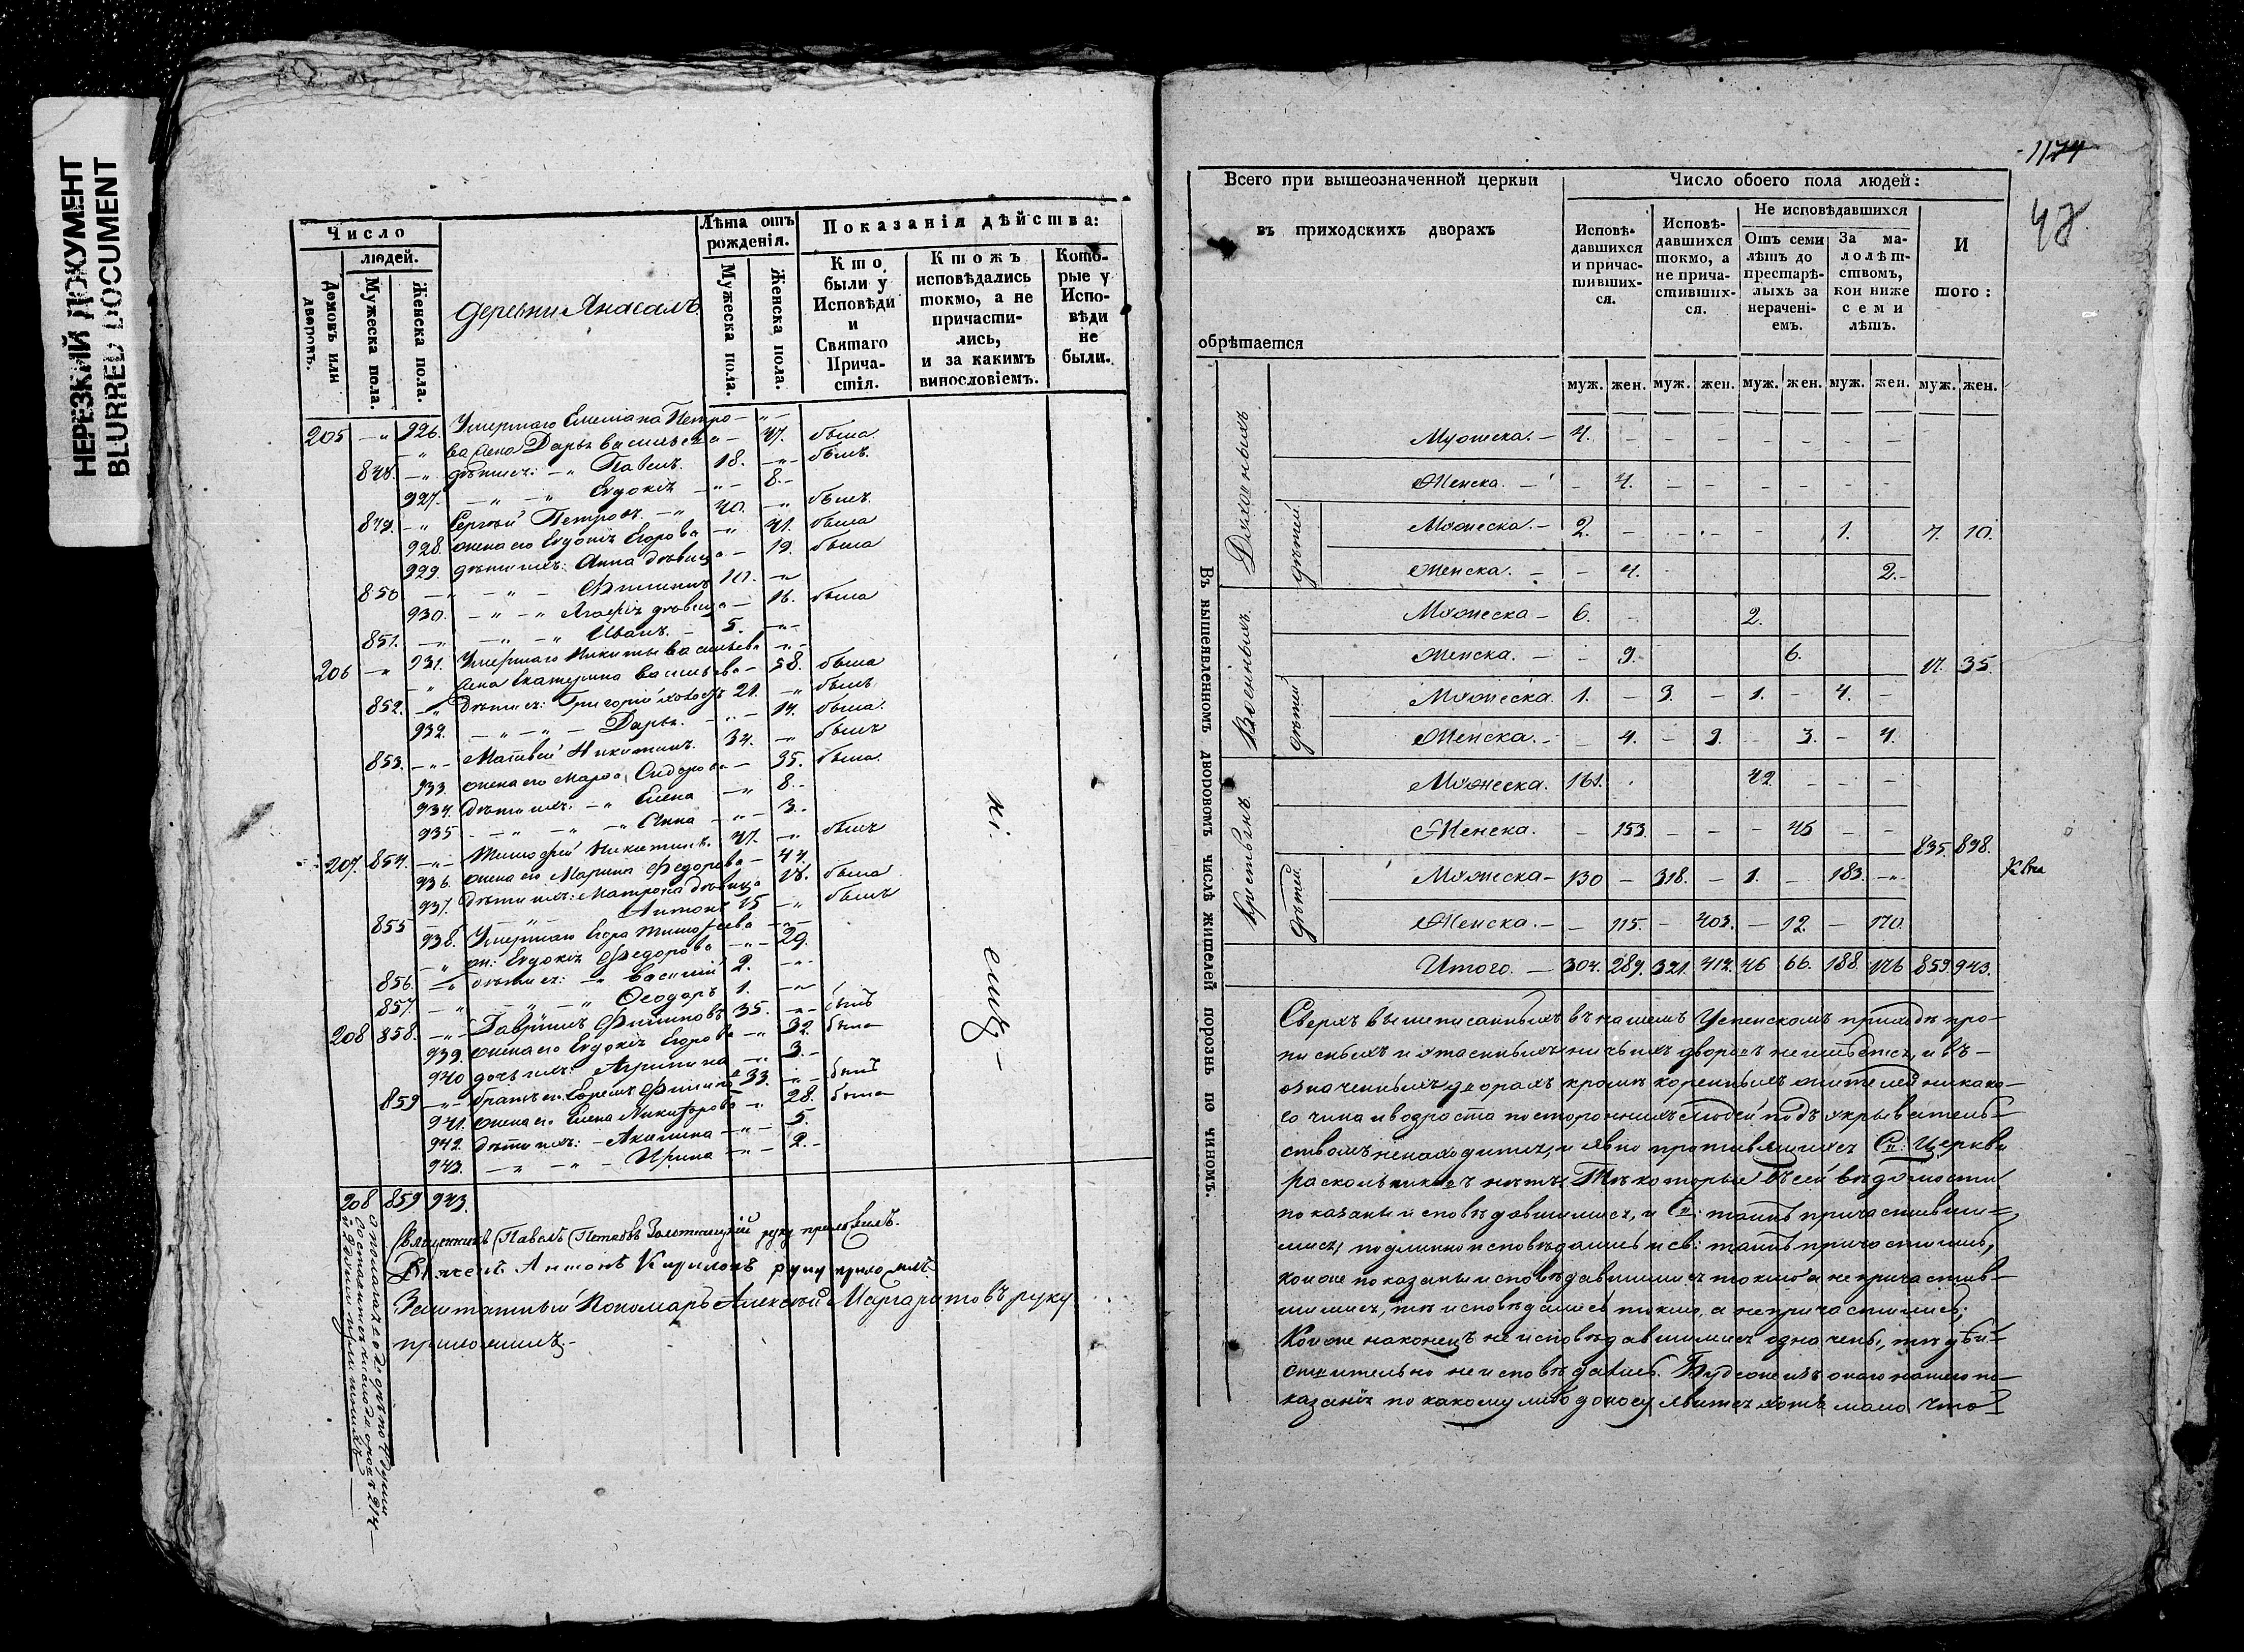 НЕРЕЗКИЙ ДОКУМЕНТ
BLURRED DOCUMENT
Число
людей.
Домовъ или дворовъ.
Мужеска пола.
Женска пола.
деревни Янасалъ
Лѣта отъ рожденія.
Мужеска пола.
Женска пола.
Показанія дѣйства:
Кто были у Исповѣди и Святаго Причастія.
Ктожъ исповѣдались токмо, а не причастились, и за какимъ винословіемъ.
Которые у Исповѣди не были.
205 — 926. Умершаго Емелiана Петро—
ва жена Дарья Васильева — 47. была
848. — дѣти ея: — Павелъ. 18. — былъ
927. — Евдокія — 8. —
849. — Сергѣй Петровъ. — 40. — былъ
928. жена его Евдокія Егорова — 41. была
929. дѣти ихъ: Анна дѣвица — 19. была
850 — Филиппъ 10. —
930. — Агафія дѣвица — 16. была
851. — Иванъ. — 5. —
206 — 931. Умершаго Никиты Васильева
жена Екатерина Васильева — 58. была
852. — Дѣти ея: Григорій холостъ 21. — былъ
932. — Дарья. — 14. была.
853. — Матвей Никитинъ. 34. — былъ
933. жена его Марфа Сидорова — 35. была.
934. Дѣти ихъ: — Елена — 8. —
935 — Анна — 3. —
207. 854. — Тимофей Никитинъ. 47. — былъ
936. жена его Марина Федорова — 44.
937. Дѣти ихъ: Матрона дѣвица 18. была
855 — Антонъ 15 — былъ
938. Умершаго Егора Тимофеева
ж: Евдокія Федорова — 29.
856. — дѣти ея: — Василий 2. —
857. — Феодоръ 1. —
208 858. — Гаврiилъ Филиповъ 35. — былъ
939. жена его Евдокія Егорова — 32. была
940 дочь ихъ: Агрипина — 3. —
859 — братъ его Ефремъ Филиповъ 33. — былъ
941. жена его Елена Никифорова — 28. была
942. дѣти ихъ: — Акилина — 5.
943. — Ирина — 2. —
208 859 943.
Священникъ Павелъ Петровъ Золотницкій руку приложилъ.
Дьячекъ Антонъ Кириловъ руку приложилъ.
Заштатный Пономарь Алексѣй Маргаритовъ руку
приложилъ. —
1174
48.
Всего при вышеозначенной церкви
въ приходскихъ дворахъ
обрѣтается
Число обоего пола людей:
Исповѣдавшихся и причастившихся.
Исповѣдавшихся токмо, а не причастившихся.
Не исповѣдавшихся
Отъ семи лѣтъ до престарѣлыхъ за нераченіемъ.
За малолѣтствомъ, кои ниже семи лѣтъ.
Итого:
муж. жен. муж. жен. муж. жен. муж. жен. муж. жен.
Въ вышеявленномъ дворовомъ числѣ жителей порознь по чиномъ.
Духовныхъ
Мужеска. — 4. — — — — — — —
Женска. — — 4. — — — — — —
дѣтей
Мужеска. — 2. — — — — 1. 7. 10.
Женска. — — 4. — 2. —
Военныхъ.
Мужеска — 6. — 2.
Женска. — — 9. 6. 17. 35.
дѣтей
Мужеска. 1. — 3. — 1. — 4. —
Женска. — — 4. — 9. — 3. — 4.
Крестьянъ.
Мужеска. 161. 42. — — —
Женска. — 153. — — — 45 — —
835. 898.
дѣтей.
Мужеска — 130 — 318. — 1. — 183. —
Женска. — — 115. — 403. — 12. — 170.
Итого. — 304. 289. 321. 412. 46 66. 188. 176 859. 943.
Сверхъ вышеписанныхъ въ нашемъ Успенскомъ приходѣ про—
писныхъ и утаенныхъ ничьихъ дворовъ не имѣется, и въ —
означенныхъ дворахъ кромѣ коренныхъ жителей никако—
го чина и возроста постороннихъ людей подъ укрыватель—
ствомъ ненаходится, и явно противящихся Св: Церкви
раскольниковъ нѣтъ. Тѣ которые въ сей вѣдомости
показаны исповѣдавшимися, и Св: таинъ причастивши—
мися, подлинно исповѣдались и св: таинъ причастились,
кои же показаны исповѣдавшимися токмо а не причастив—
шимися, тѣ исповѣдались токмо, а непричастились;
Кои же наконецъ не исповѣдавшимися означены, тѣ дѣй—
ствительно не исповѣдались. Буде же изъ онаго нашего по—
казанія по какому либо доносу явится хотя мало что